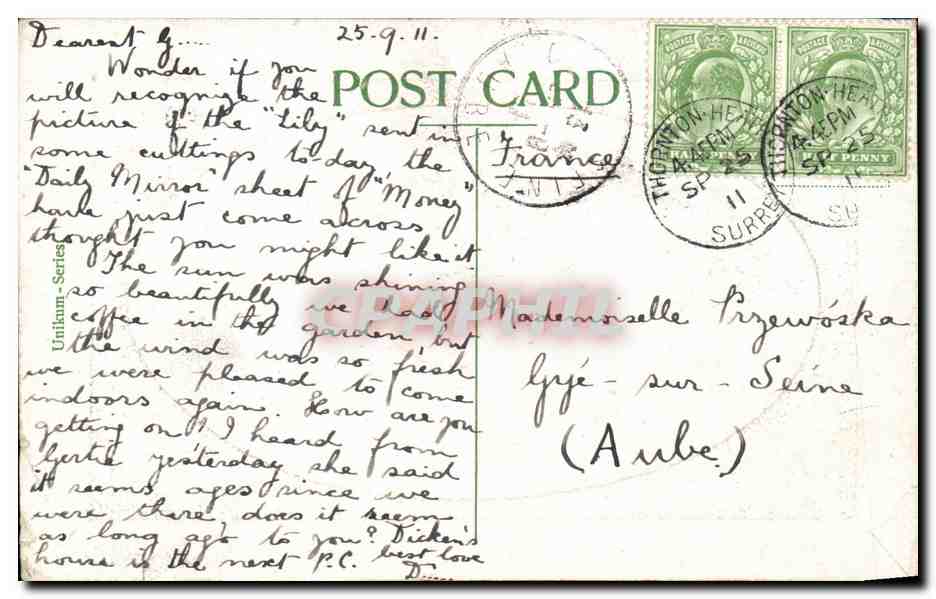 Dearest G.....
25-9.11.
Wonder if you
will recognize the
picture of the "Lily" sent in
some cuttings to-day, the
"Daily Mirror" sheet of "Money"
have just come across
thought you might like it
The sun was shining
so beautifully we had
coffee in the garden, but
the wind was so fresh
we were pleased to come
indoors again. How are you
getting on? I heard from
Gertie yesterday she said
it seems ages since we
were there, does it seem
as long ago to you? Dicken's
house is the next P.C. best love
D.....
POST CARD
France
Mademoiselle Przewóska
Gyé-sur-Seine
(Aube)
Unikum-Series
POSTAGE & REVENUE
POSTAGE & REVENUE
PENNY
THORNTON-HEATH
4.45PM
SP 25
11
SURREY
THORNTON-HEA
4.45PM
SP 25
11
SU